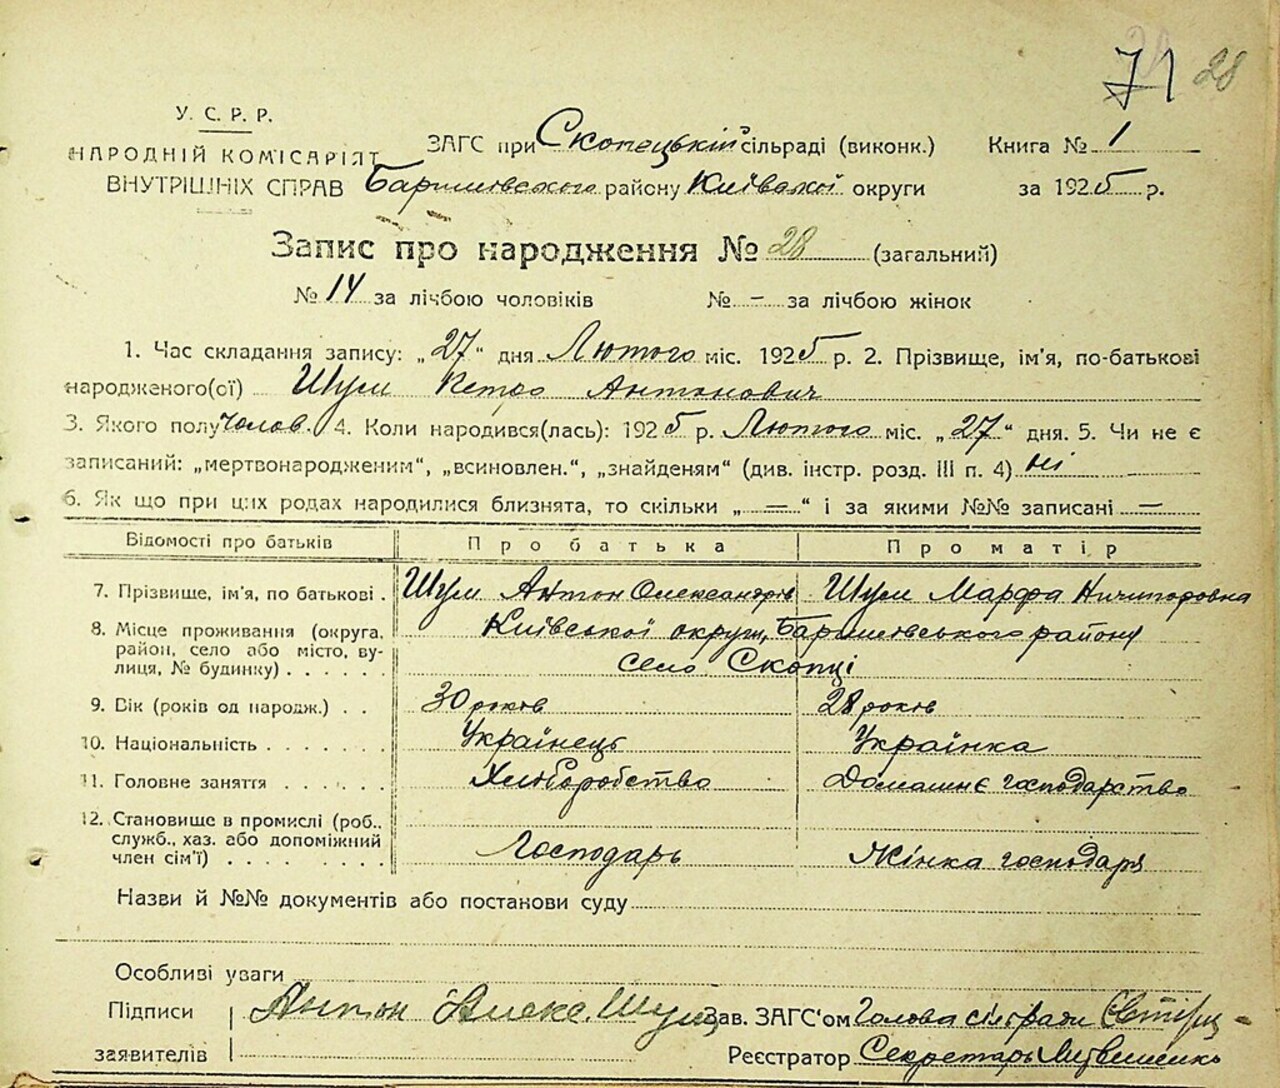 71 28
У. С. Р. Р.
НАРОДНІЙ КОМІСАРІЯТ
ВНУТРІШНІХ СПРАВ
ЗАГС при Скопецькій сільраді (виконк.) Книга № 1
Баришівського району Київської округи за 1925 р.
Запис про народження № 28 (загальний)
№ 14 за лічбою чоловіків № - за лічбою жінок
1. Час складання запису: „27“ дня Лютого міс. 1925 р. 2. Прізвище, ім'я, по-батькові
народженого(ої) Шули Петро Антонович
3. Якого полу чолов. 4. Коли народився(лась): 1925 р. Лютого міс. „27“ дня. 5. Чи не є
записаний: „мертвонародженим“, „всиновлен.“, „знайденям“ (див. інстр. розд. III п. 4) ні
6. Як що при цих родах народилися близнята, то скільки „—“ і за якими №№ записані —
Відомості про батьків Про батька Про матір
7. Прізвище, ім'я, по батькові . Шули Антон Олександрів Шули Марфа Ничипоровна
8. Місце проживання (округа, Київської округи, Баришівського району
район, село або місто, ву-
лиця, № будинку) . . . . . . село Скопці
9. Вік (років од народж.) . . 30 років 28 років
10. Національність . . . . . . . Українець Українка
11. Головне заняття . . . . . . Хліборобство Домашнє господарство
12. Становище в промислі (роб.,
служб., хаз. або допоміжний
член сім'ї) . . . . . . . . Господарь Жінка господаря
Назви й №№ документів або постанови суду
Особливі уваги
Підписи Антон Алекс. Зав. ЗАГС'ом Голова сілради
заявителів Реєстратор Секретарь Литвиненко